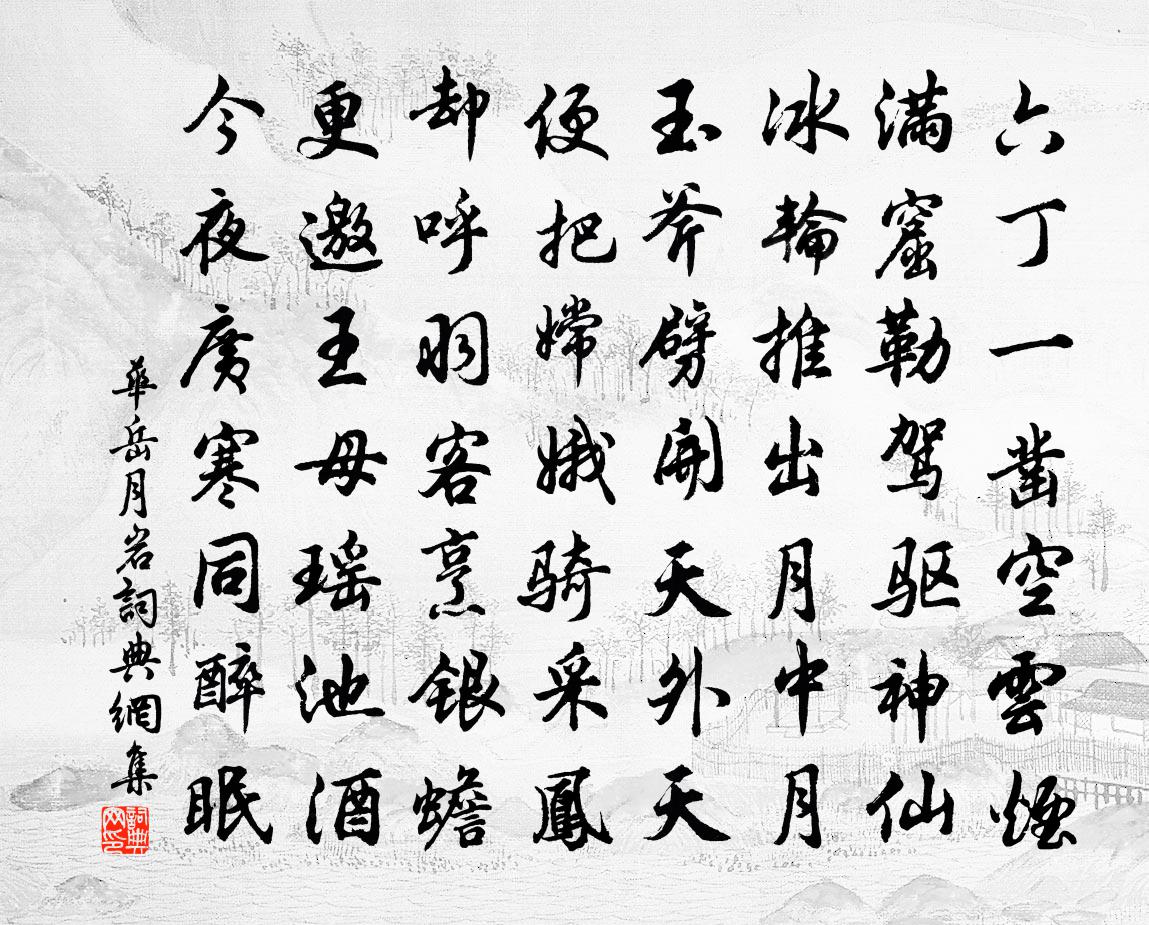 六丁一凿空雲煙
满窟勒駕驱神仙
冰輪推出月中月
玉斧劈開天外天
便把嫦娥骑采鳳
却呼羽客烹銀蟾
更邀王母瑶池酒
今夜廣寒同醉眠
華岳月岩詞典網集
詞典
网印